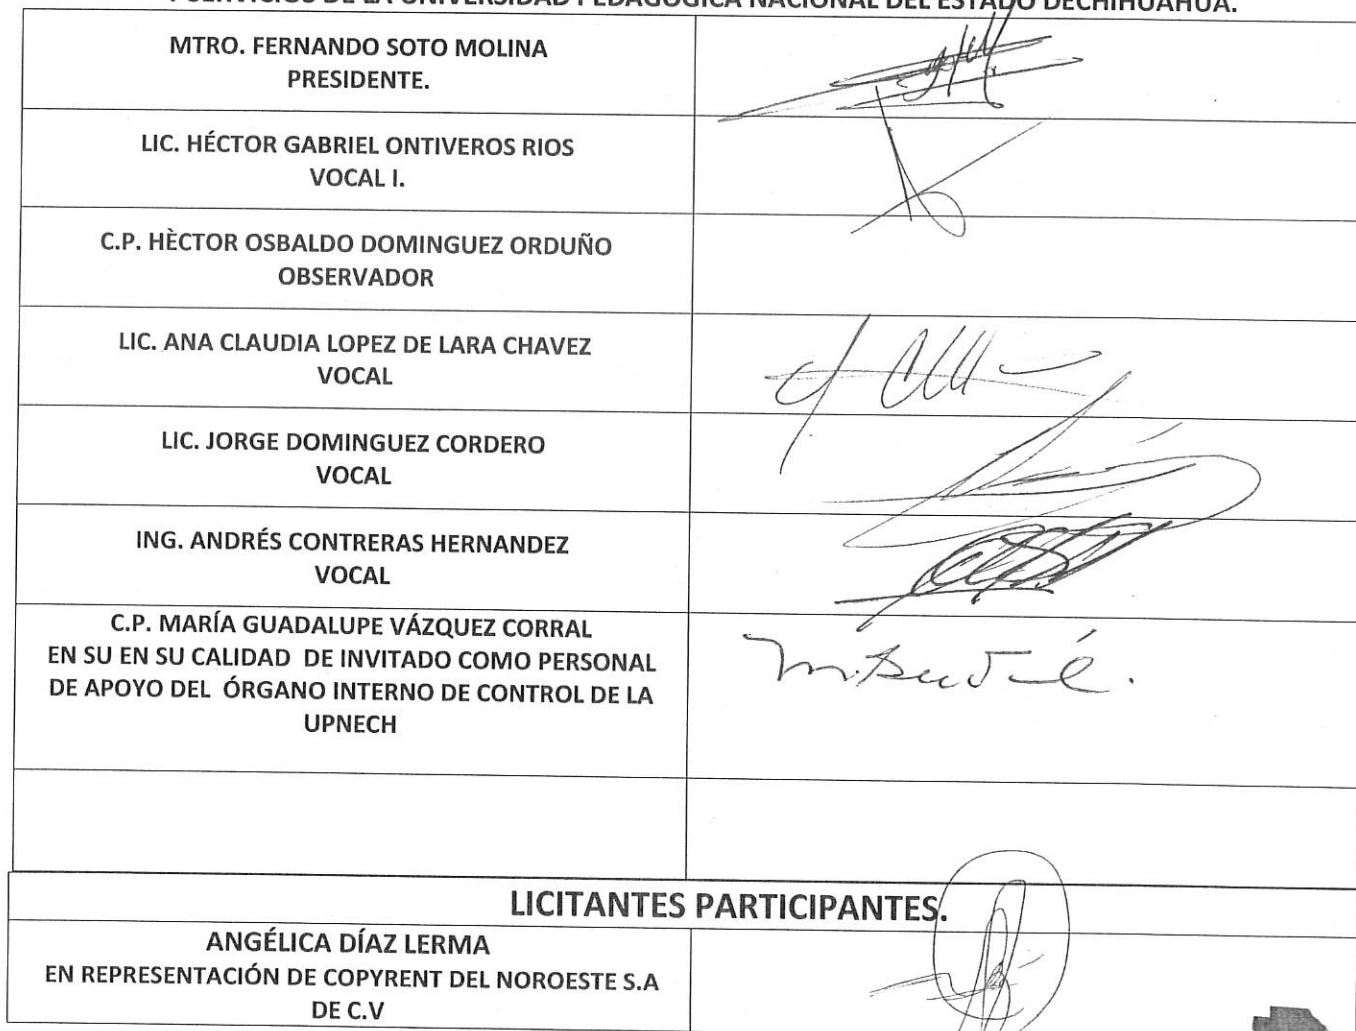 Y SERVICIOS DE LA UNIVERSIDAD PEDAGÓGICA NACIONAL DEL ESTADO DECHIHUAHUA.
MTRO. FERNANDO SOTO MOLINA
PRESIDENTE.
LIC. HÉCTOR GABRIEL ONTIVEROS RIOS
VOCAL I.
C.P. HÈCTOR OSBALDO DOMINGUEZ ORDUÑO
OBSERVADOR
LIC. ANA CLAUDIA LOPEZ DE LARA CHAVEZ
VOCAL
LIC. JORGE DOMINGUEZ CORDERO
VOCAL
ING. ANDRÉS CONTRERAS HERNANDEZ
VOCAL
C.P. MARÍA GUADALUPE VÁZQUEZ CORRAL
EN SU EN SU CALIDAD DE INVITADO COMO PERSONAL
DE APOYO DEL ÓRGANO INTERNO DE CONTROL DE LA
UPNECH
LICITANTES PARTICIPANTES.
ANGÉLICA DÍAZ LERMA
EN REPRESENTACIÓN DE COPYRENT DEL NOROESTE S.A
DE C.V